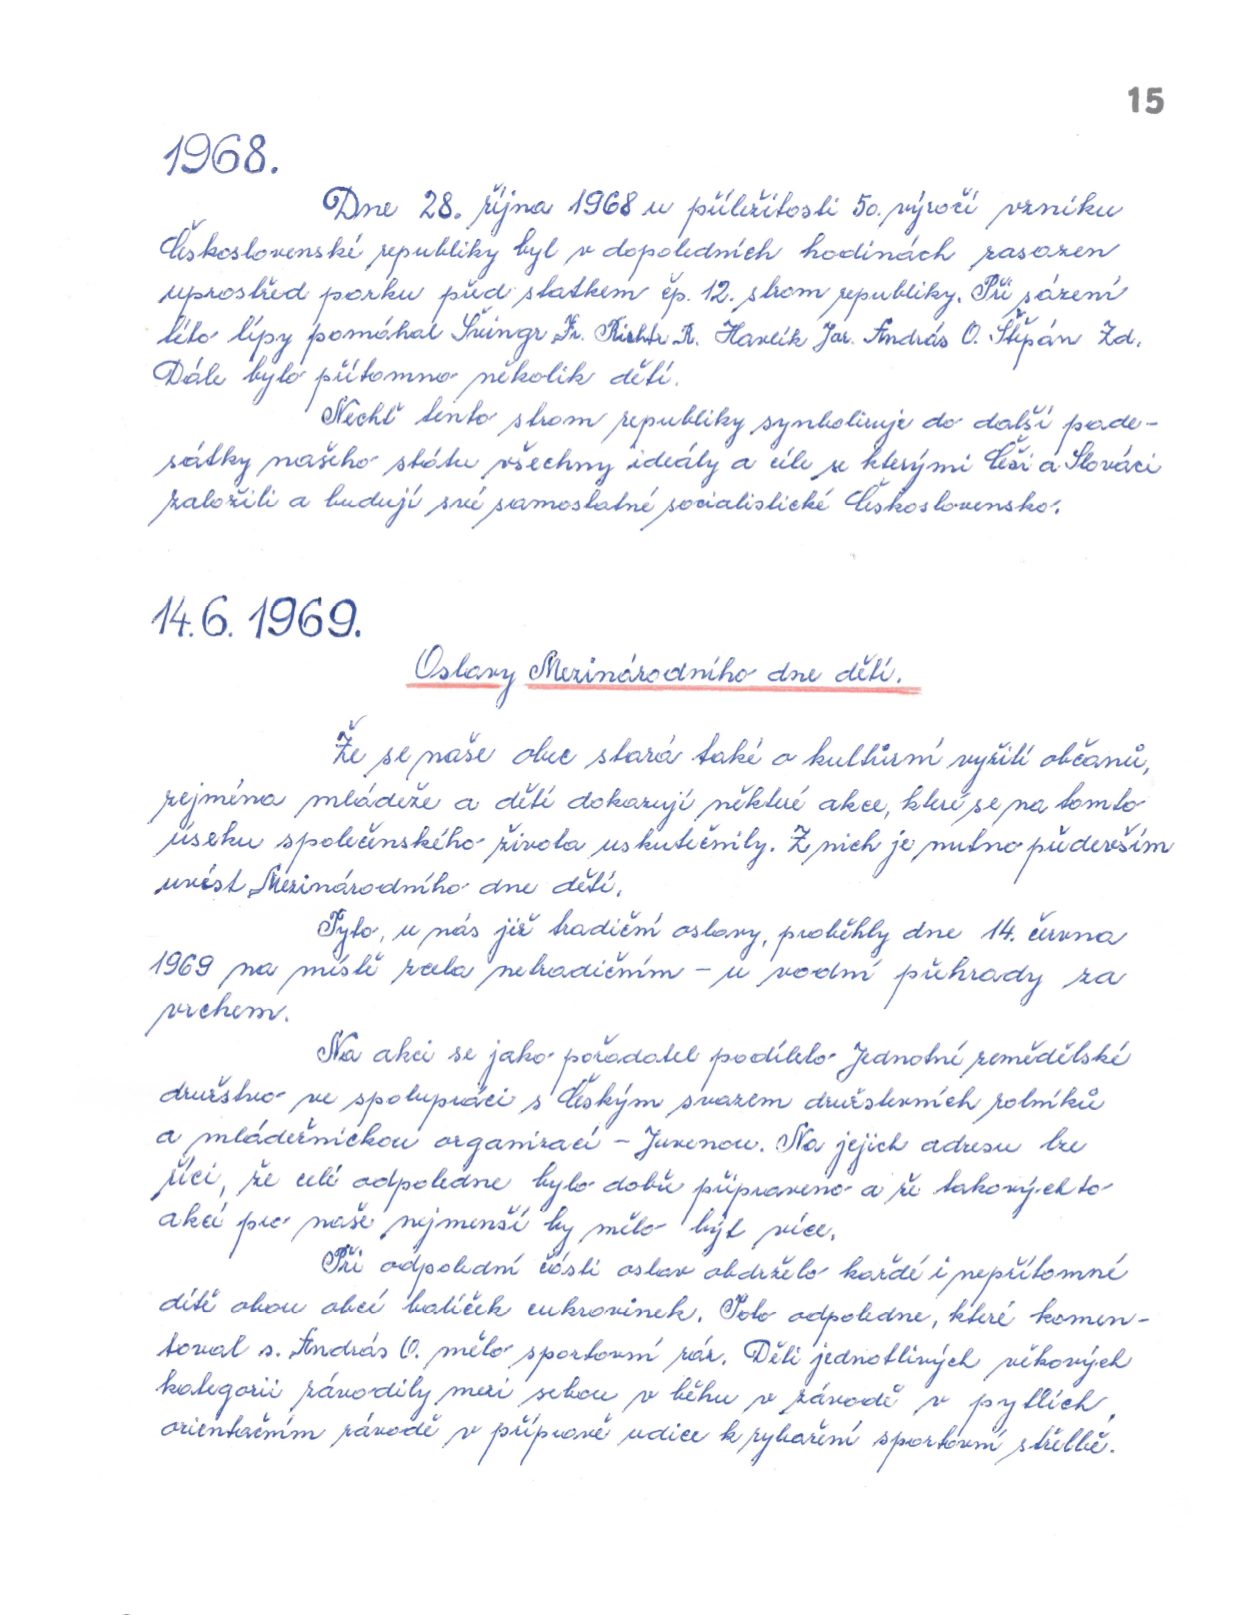 15
1968.
Dne 28. října 1968 u příležitosti 50. výročí vzniku
Československé republiky byl v dopoledních hodinách zasazen
uprostřed parku před statkem čp. 12. strom republiky. Při sázení
této lípy pomáhal Švingr Fr. Richtr R. Havlík Jar. András O. Štěpán Zd.
Dále bylo přítomno několik dětí.
Nechť tento strom republiky symbolizuje do další pade-
sátky našeho státu všechny ideály a cíle se kterými Češi a Slováci
založili a budují své samostatné socialistické Československo.
14.6. 1969.
Oslavy Mezinárodního dne dětí.
Že se naše obec stará také o kulturní vyžití občanů,
zejména mládeže a dětí dokazují některé akce, které se na tomto
úseku společenského života uskutečnily. Z nich je nutno především
uvést Mezinárodního dne dětí.
Tyto, u nás již tradiční oslavy, proběhly dne 14. června
1969 na místě zcela netradičním – u vodní přehrady za
vrchem.
Na akci se jako pořadatel podílelo Jednotné zemědělské
družstvo ve spolupráci s Českým svazem družstevních rolníků
a mládežnickou organizací – Juvenou. Na jejich adresu lze
říci, že celé odpoledne bylo dobře připraveno a že takovýchto
akcí pro naše nejmenší by mělo být více.
Při odpolední části oslav obdrželo každé i nepřítomné
dítě obou obcí balíček cukrovinek. Toto odpoledne, které komen-
toval s. András O. mělo sportovní ráz. Děti jednotlivých věkových
kategorií závodily mezi sebou v běhu v závodě v pytlích,
orientačním závodě v přípravě udice k rybaření sportovní střelbě.